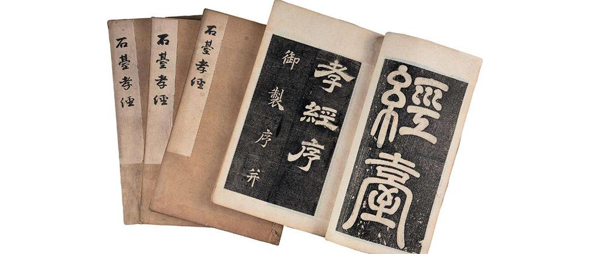 石臺孝經
石臺孝經
石臺孝經
孝經序
御製序并
經臺